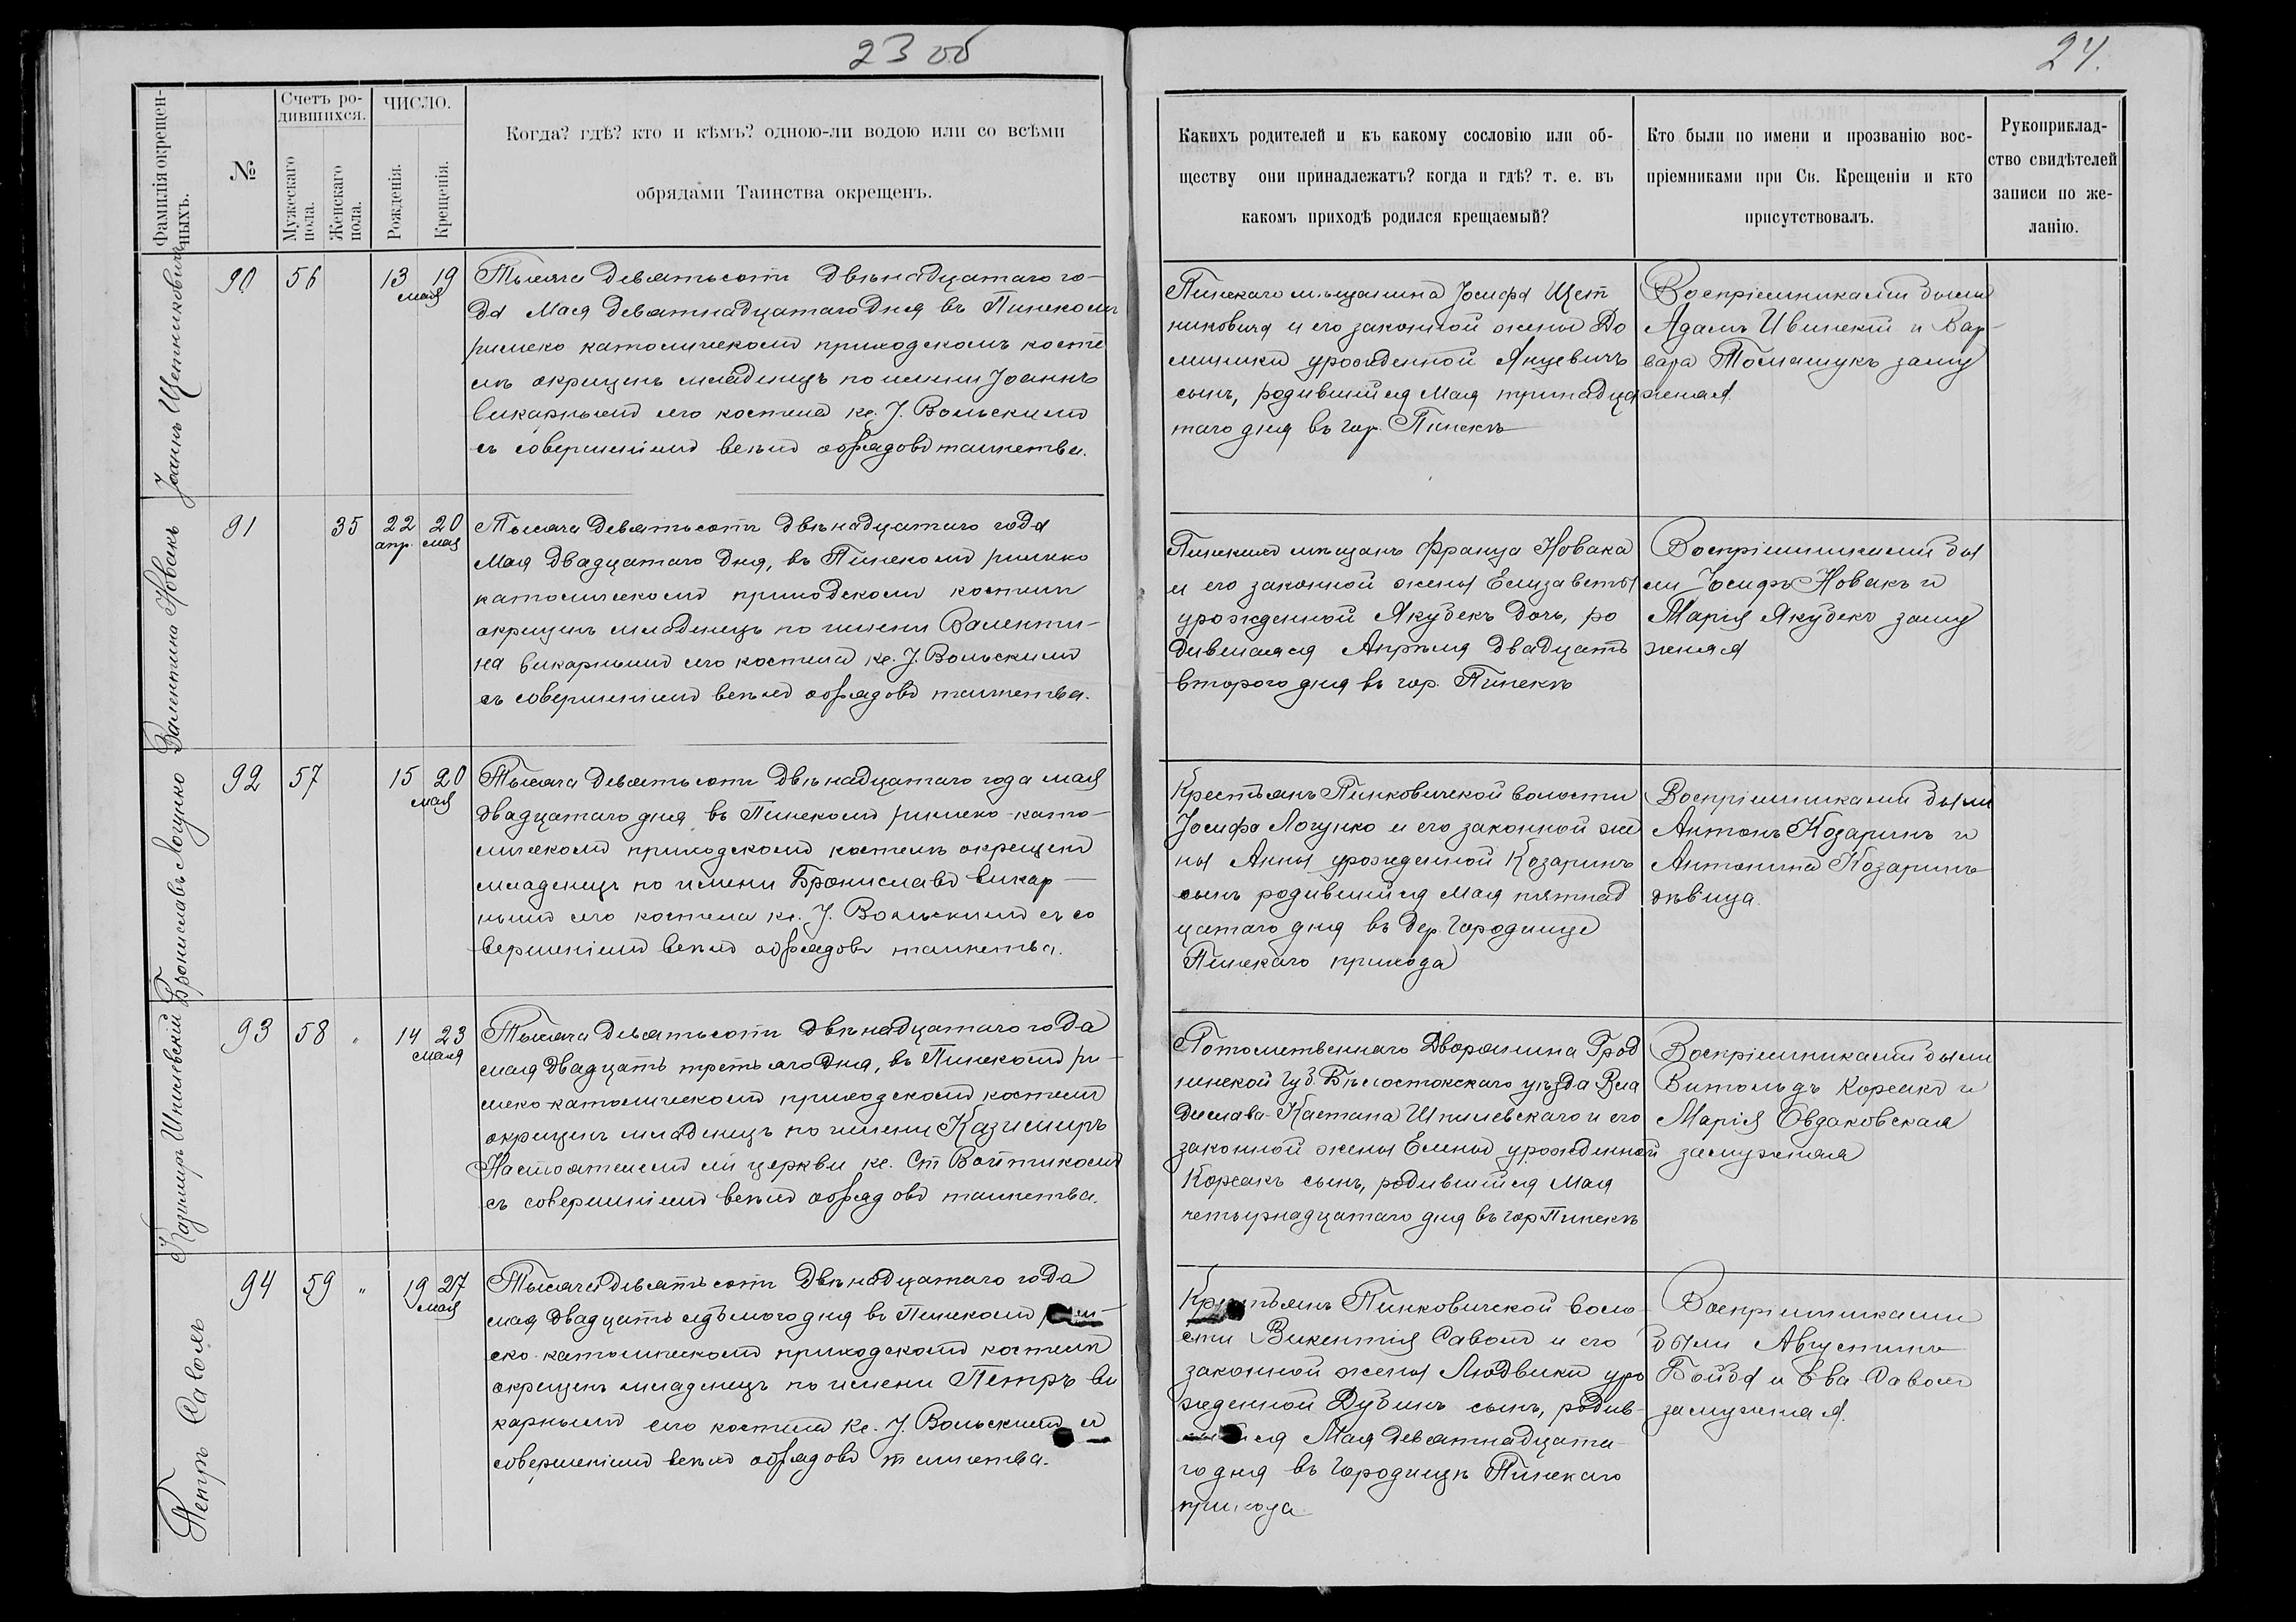 23 об
24.
Фамилія окрещен-
ныхъ.
№
Счетъ ро-
дившихся.
Мужескаго
пола.
Женскаго
пола.
ЧИСЛО.
Рожденія.
Крещенія.
Когда? гдѣ? кто и кѣмъ? одною-ли водою или со всѣми
обрядами Таинства окрещенъ.
Какихъ родителей и къ какому сословію или об-
ществу они принадлежатъ? когда и гдѣ? т. е. въ
какомъ приходѣ родился крещаемый?
Кто были по имени и прозванію вос-
пріемниками при Св. Крещеніи и кто
присутствовалъ.
Рукоприклад-
ство свидѣтелей
записи по же-
ланію.
Іоаннъ Щетниковичъ
90 56 13 19
мая
Тысяча девятьсотъ двѣнадцатаго го-
да Мая девятнадцатаго дня въ Пинскомъ
римско католическомъ приходскомъ косте
лѣ окрещенъ младенецъ по имени Іоаннъ
викарнымъ сего костела кс. І. Вольскимъ
съ совершеніемъ всѣхъ обрядовъ таинства.
Пинскаго мѣщанина Іосифа Щет
никовича и его законной жены До
миники урожденной Янцевичъ
сынъ, родившійся Мая тринадца
таго дня въ гор. Пинскѣ
Воспріемниками были
Адамъ Ивинскій и Вар-
вара Томашукъ заму
жняя
Валентина Новакъ
91 35 22 20
апр. мая
Тысяча девятьсотъ двѣнадцатаго года
Мая двадцатаго дня, въ Пинскомъ римско
католическомъ приходскомъ костелѣ
окрещенъ младенецъ по имени Валенти-
на викарнымъ сего костела кс. І. Вольскимъ
съ совершеніемъ всѣхъ обрядовъ таинства.
Пинскихъ мѣщанъ Франца Новака
и его законной жены Елизаветы
урожденной Якубекъ дочь, ро
дившаяся Апрѣля двадцать
второго дня въ гор. Пинскѣ
Воспріемниками бы
ли Іосифъ Новакъ и
Марія Якубекъ заму
жняя
Брониславъ Логунко
92 57 15 20
мая
Тысяча девятьсотъ двѣнадцатаго года мая
двадцатаго дня въ Пинскомъ римско-като-
лическомъ приходскомъ костелѣ окрещенъ
младенецъ по имени Брониславъ викар-
нымъ сего костела кс. І. Вольскимъ съ со
вершеніемъ всѣхъ обрядовъ таинства.
Крестьянъ Пинковичской волости
Іосифа Логунко и его законной же
ны Анны урожденной Козаринъ
сынъ родившійся Мая пятнад
цатаго дня въ дер. Городище
Пинскаго прихода
Воспріемниками были
Антонъ Козаринъ и
Антонина Козаринъ
дѣвица.
Казимиръ Шпилевскій
93 58 " 14 23
мая
Тысяча девятьсотъ двѣнадцатаго года
мая двадцать третьяго дня, въ Пинскомъ ри-
мско-католическомъ приходскомъ костелѣ
окрещенъ младенецъ по имени Казимиръ
Настоятелемъ сей церкви кс. Ст Войтикомъ
съ совершеніемъ всѣхъ обрядовъ таинства.
Потомственнаго Дворянина Грод
ненской губ. Бѣлостокскаго уѣзда Вла
дислава-Каетана Шпилевскаго и его
законной жены Елены урожденной
Корсакъ сынъ, родившійся Мая
четырнадцатаго дня въ гор Пинскѣ
Воспріемниками были
Витольдъ Корсакъ и
Марія Овдаковская
замужняя
Петръ Саволъ
94 59 " 19 27
мая
Тысяча девятьсотъ двѣнадцатаго года
мая двадцать седьмого дня въ Пинскомъ рим-
ско-католическомъ приходскомъ костелѣ
окрещенъ младенецъ по имени Петръ ви
карнымъ сего костела кс. І. Вольскимъ съ
совершеніемъ всѣхъ обрядовъ таинства.
Крестьянъ Пинковичской воло-
сти Викентія Саволъ и его
законной жены Людвики уро
жденной Дубинъ сынъ, родив-
шійся Мая девятнадцата-
го дня въ Городищѣ Пинскаго
прихода
Воспріемниками
были Августинъ
Бойба и Ева Саволъ
замужняя.